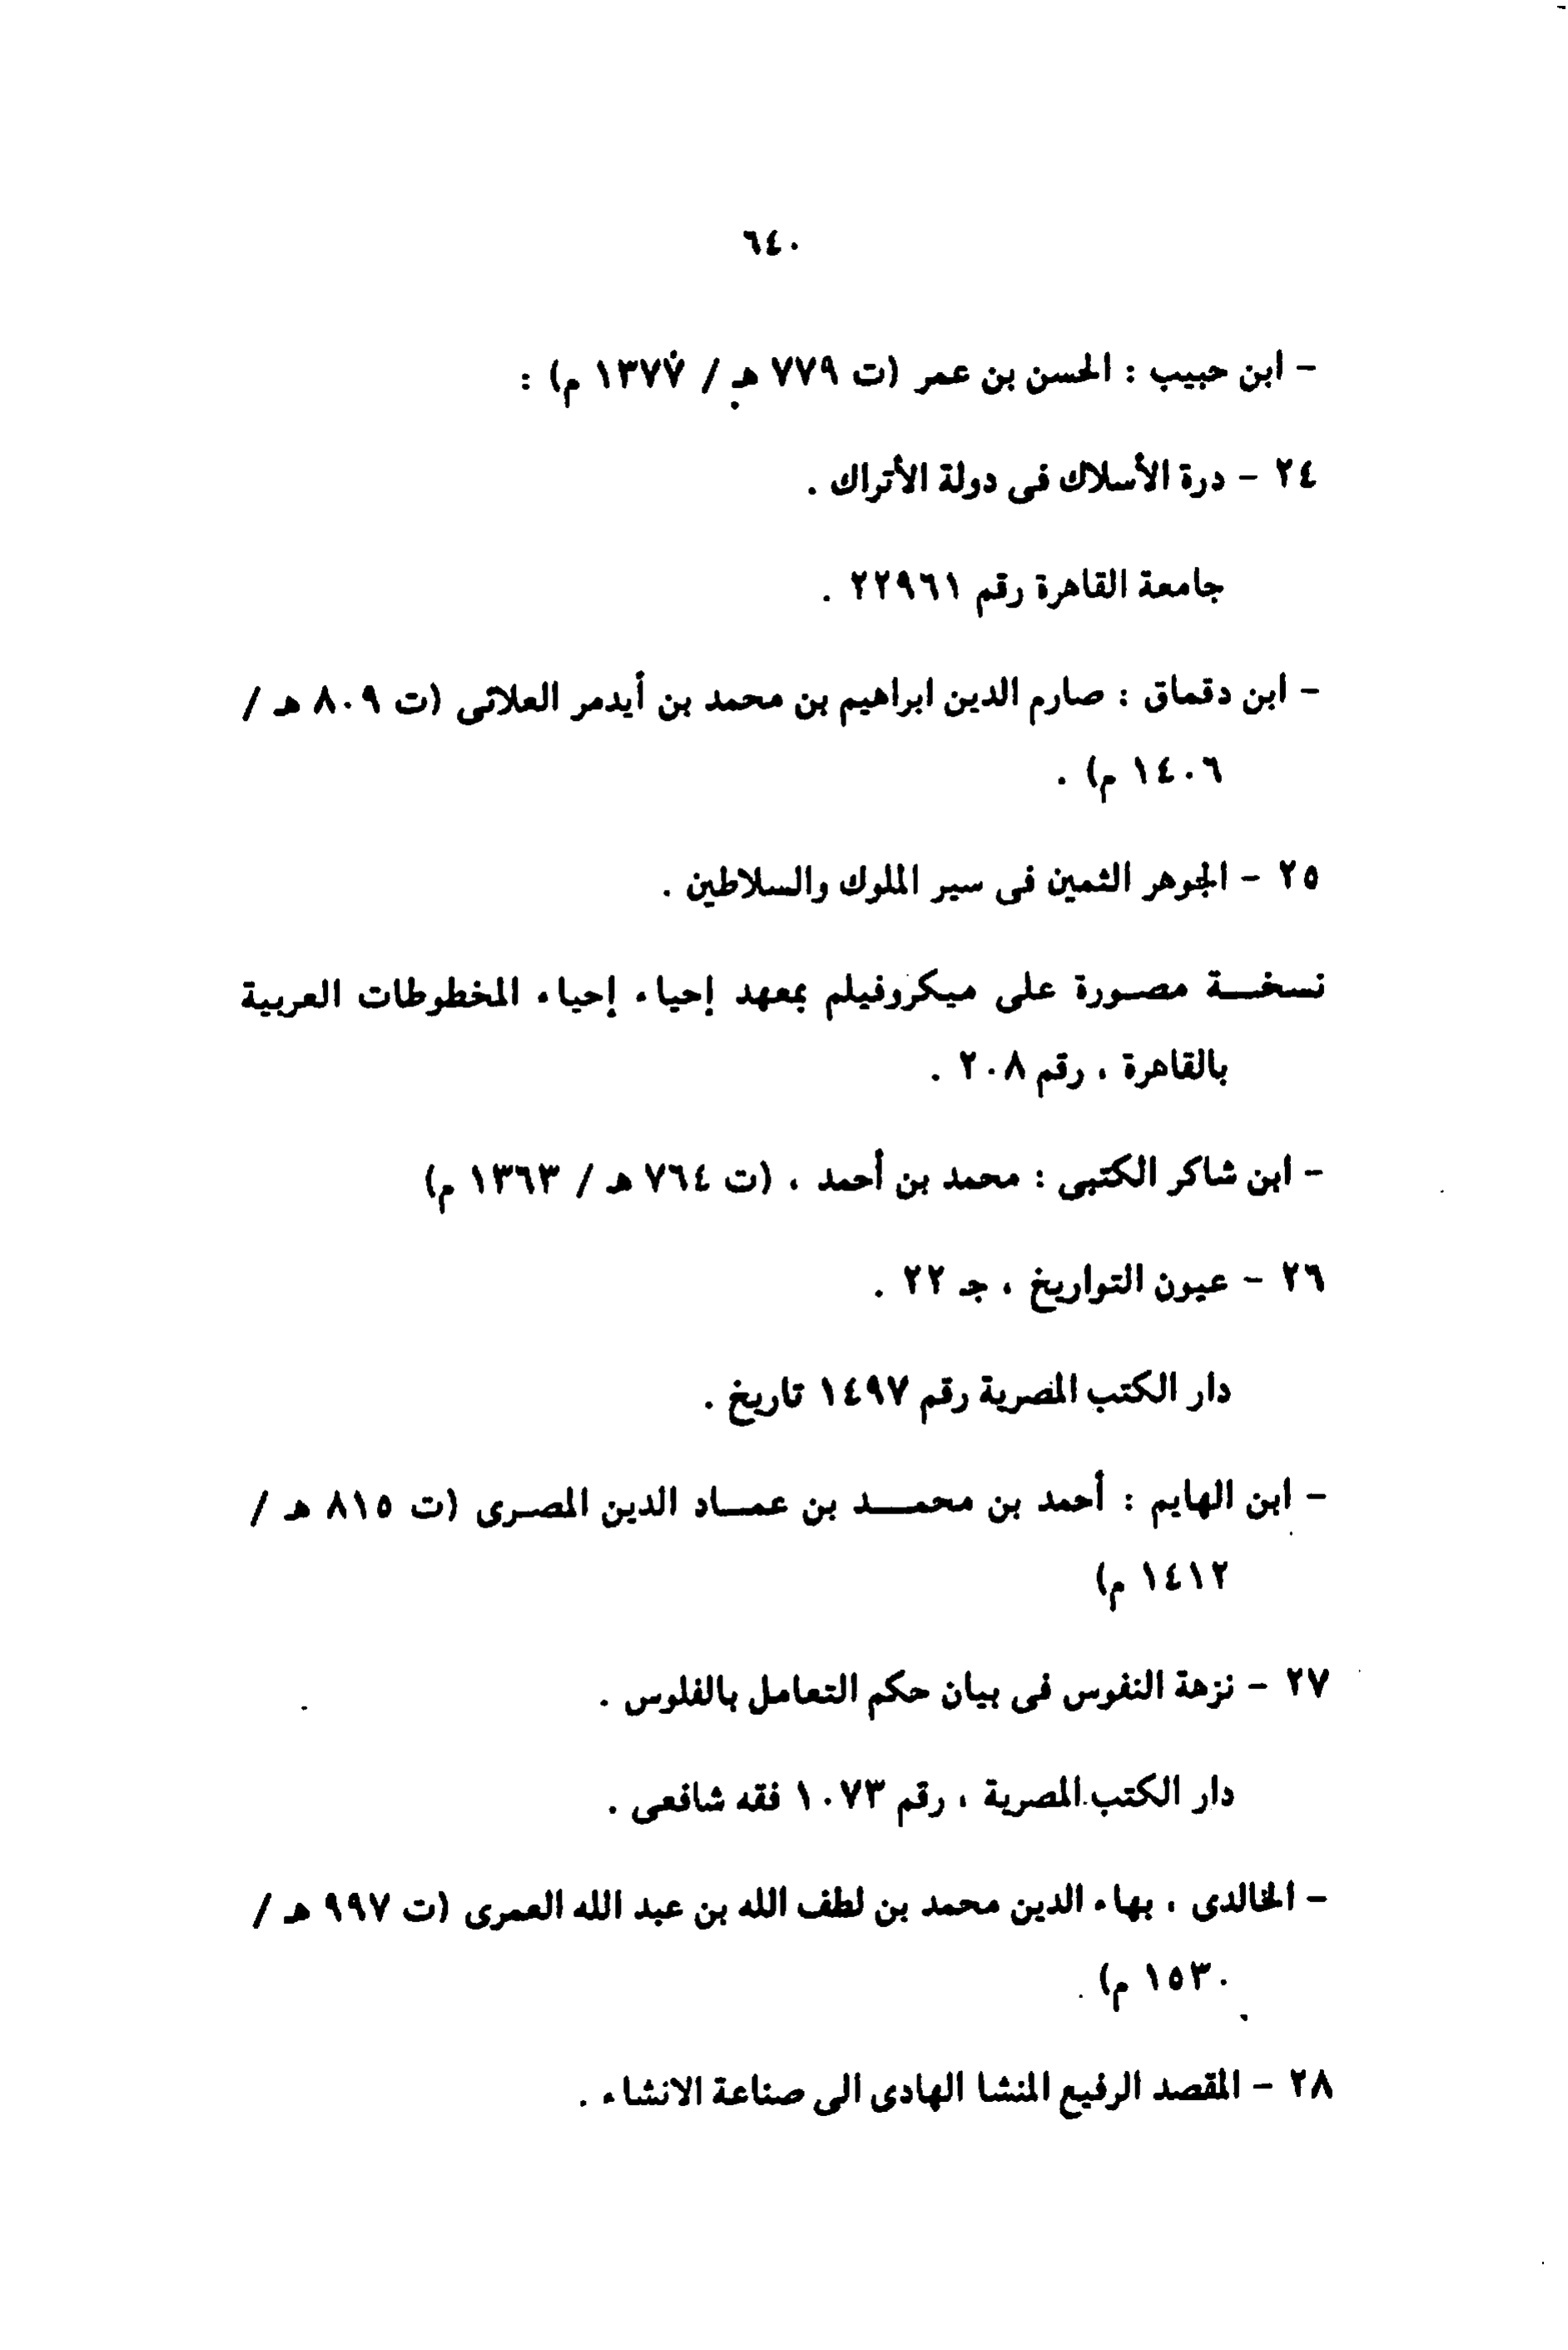 ٦٤٠
- ابن حبيب : الحسن بن عمر (ت ٧٧٩ هـ / ١٣٧٧ م) :
٢٤ - درة الأسلاك فى دولة الأتراك .
جامعة القاهرة رقم ٢٢٩٦١ .
- ابن دقماق : صارم الدين ابراهيم بن محمد بن أيدمر العلائى (ت ٨٠٩ هـ /
١٤٠٦ م) .
٢٥ - الجوهر الثمين فى سير الملوك والسلاطين .
نسخة مصورة على ميكروفيلم بمعهد إحياء إحياء المخطوطات العربية
بالقاهرة ، رقم ٢٠٨ .
- ابن شاكر الكتبى : محمد بن أحمد ، (ت ٧٦٤ هـ / ١٣٦٣ م)
٢٦ - عيون التواريخ ، جـ ٢٢ .
دار الكتب المصرية رقم ١٤٩٧ تاريخ .
- ابن الهايم : أحمد بن محمد بن عماد الدين المصرى (ت ٨١٥ هـ /
١٤١٢ م)
٢٧ - نزهة النفوس فى بيان حكم التعامل بالفلوس .
دار الكتب المصرية ، رقم ١٠٧٣ فقه شافعى .
- الخالدى ، بهاء الدين محمد بن لطف الله بن عبد الله العمرى (ت ٩٩٧ هـ /
١٥٣٠ م) .
٢٨ - المقصد الرفيع المنشا الهادى الى صناعة الانشاء .